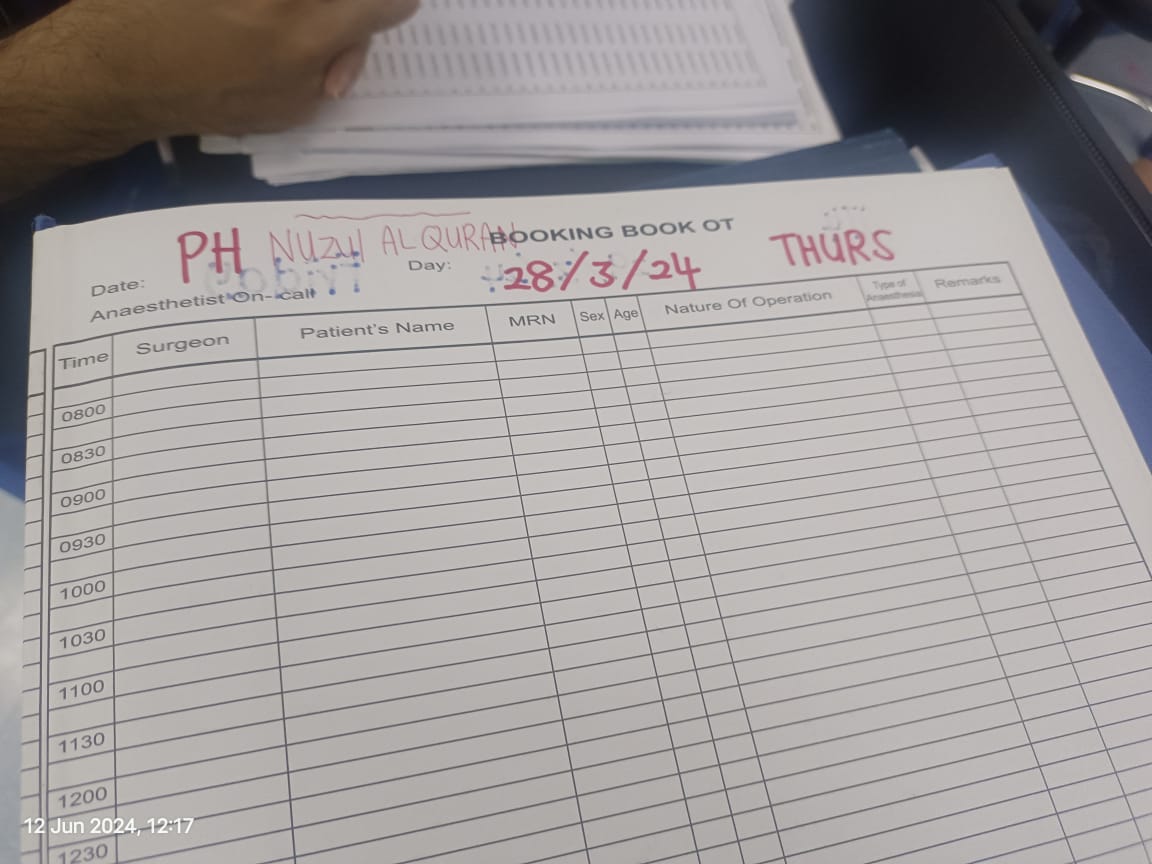 PH NUZUL AL QURAN BOOKING BOOK OT
Date: Day: 28/3/24 THURS
Anaesthetist On- call
Time Surgeon Patient's Name MRN Sex Age Nature Of Operation Type of Anaesthesia Remarks
0800
0830
0900
0930
1000
1030
1100
1130
1200
1230
12 Jun 2024, 12:17